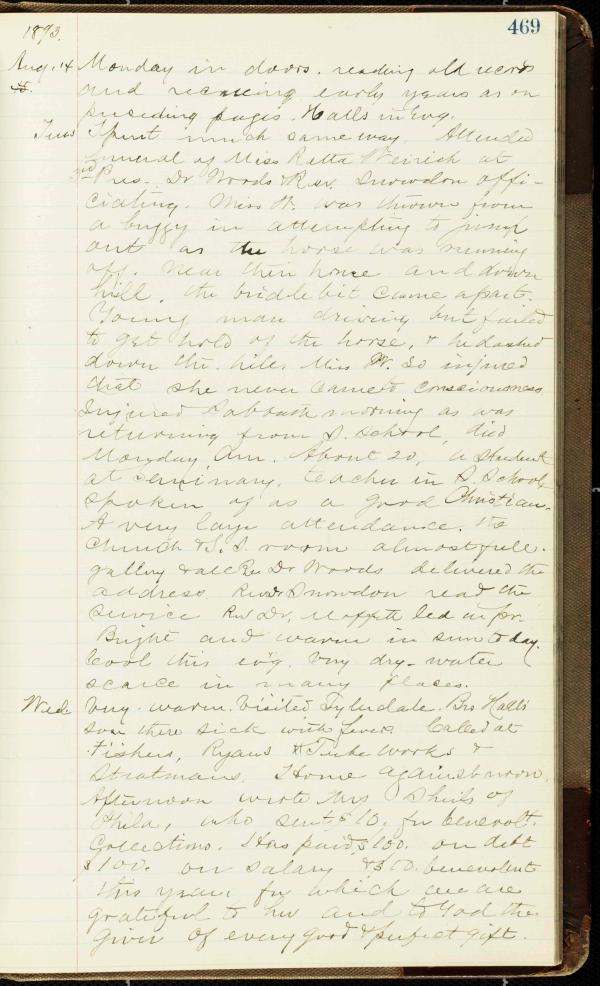 469
1893.
Aug. 14 Monday in doors. reading old records
and reviewing early years as on
preceding pages. Halls in Evg.
Tues Spent much same way. Attended
funeral of Miss Retta Weirich at
2nd Pres. Dr Woods & Rev. Snowdon offi-
ciating. Miss W. was thrown from
a buggy in attempting to jump
out as the horse was running
off. Near their home and down
hill, the bridle bit came apart.
Young man driving out failed
to get hold of the horse, & he dashed
down the hill. Miss W. so injured
that she never came to consciousness
Injured Sabbath morning as was
returning from S. School, died
Monday, Am. About 20, a student
at seminary, teacher in S. School,
spoken of as a good Christian.
A very large attendance. The
church & S. S. room almost full.
gallery & all Rev Dr Woods delivered the
address. Rev Snowdon read the
service Rev Dr. Moffett led in pr.
Bright and warm in sun to day.
Cool this evg. Very dry - water
scarce in many places.
Wed Very warm. Visited Tylerdale. Bro Hall's
son there sick with fever. Called at
Fishers, Ryans & Tube Works &
Stratmans. Home against noon.
Afternoon wrote Mrs Shields of
Phila, who sent $10. for benevolt.
Collections. Has paid $100. on debt
$100. on salary & $50. benevolent
this year, for which we are
grateful to her and to God the
giver of every good & perfect gift.